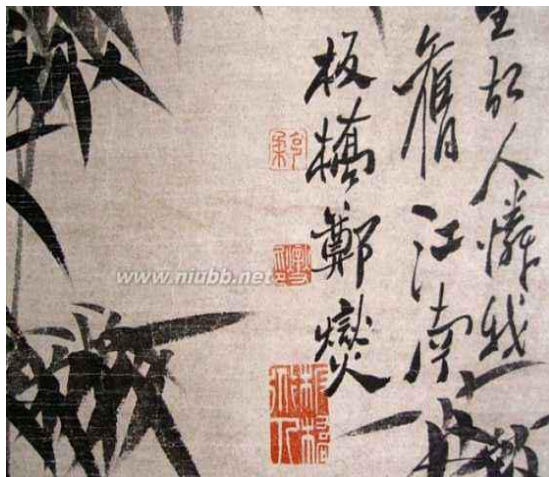 故人憐我
舊江南
板橋鄭燮
www.niubb.net